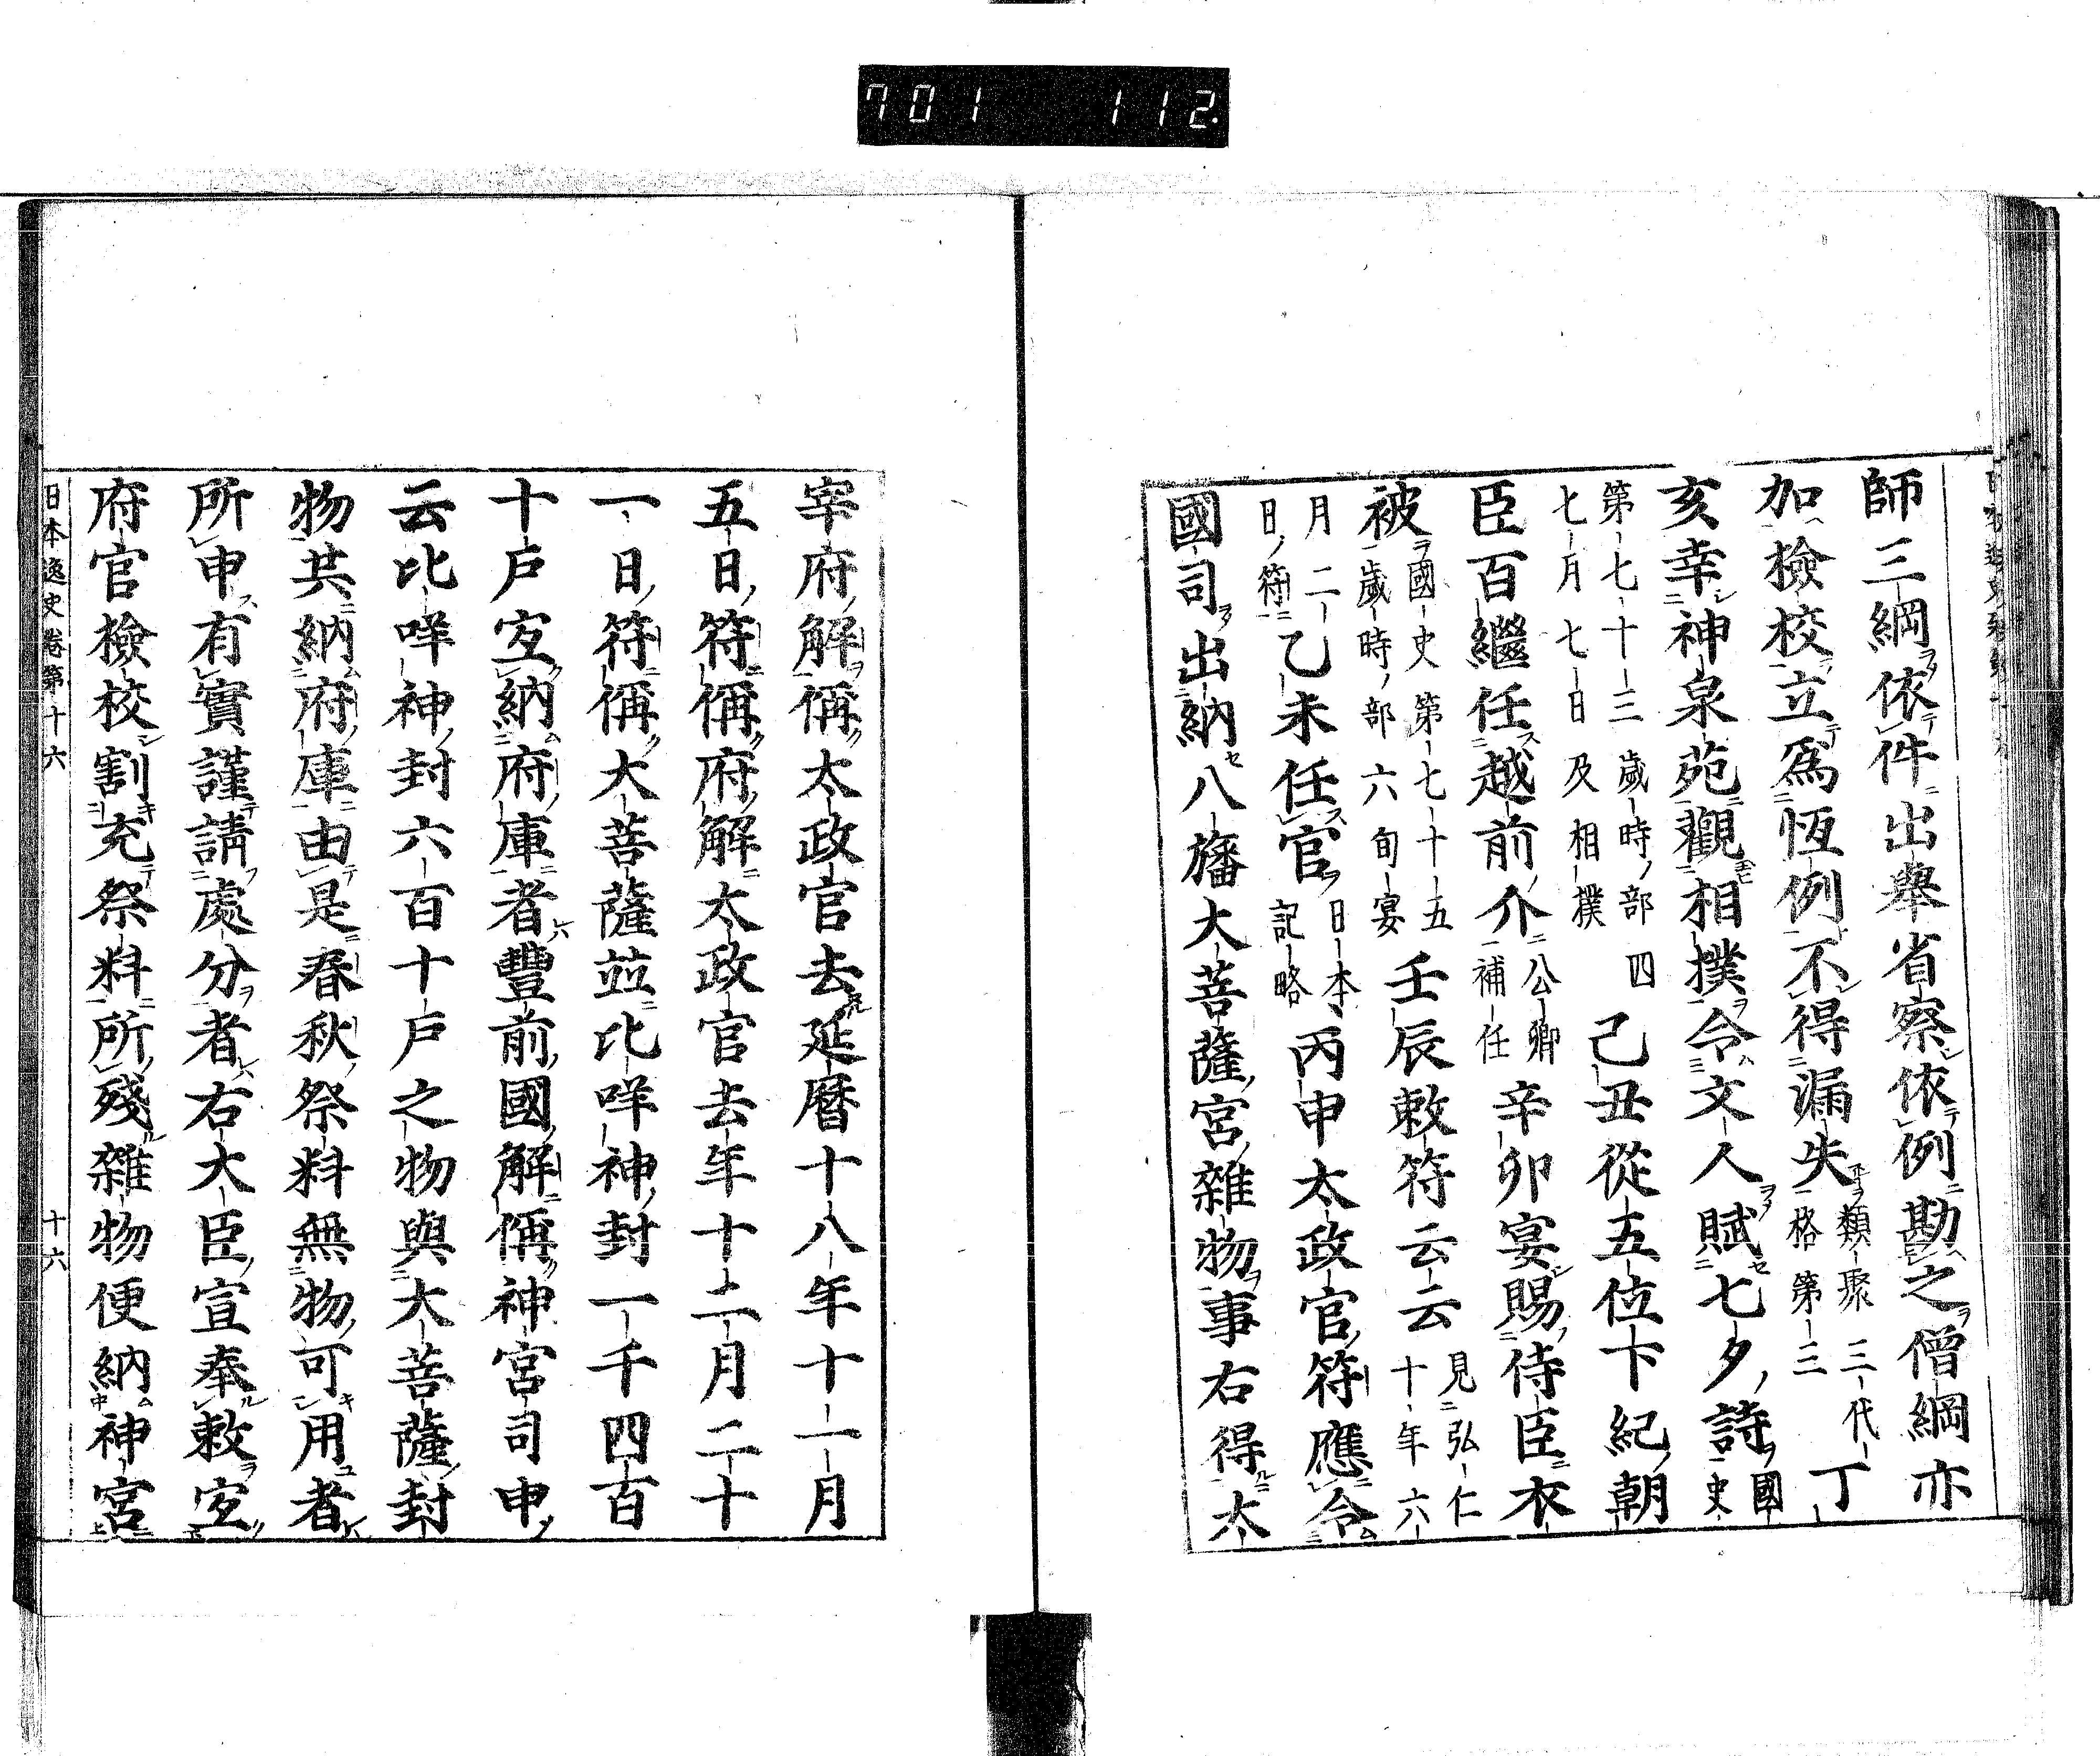 701 112.
師三綱依件出舉省察依例勘之僧綱亦
加檢校立爲恆例不得漏失類聚三代格第三丁
亥幸神泉苑觀相撲令文人賦七夕詩國史
第七十三歲時部四七月七日及相撲己丑從五位下紀朝
臣百繼任越前介公卿補任辛卯宴賜侍臣衣
被國史第七十五歲時部六旬宴壬辰敕符云云見弘仁十年六
月二日符乙未任官日本記略丙申太政官符應令
國司出納八旛大菩薩宮雜物事右得太
宰府解偁太政官去延曆十八年十一月
五日符偁府解太政官去年十二月二十
一日符偁大菩薩竝比咩神封一千四百
十戶㝎納府庫者豐前國解偁神宮司申
云比咩神封六百十戶之物與大菩薩封
物共納府庫由是春秋祭料無物可用者
所申有實謹請處分者右大臣宣奉敕㝎
府官檢校割充祭料所殘雜物便納神宮
日本逸史卷第十六 十六